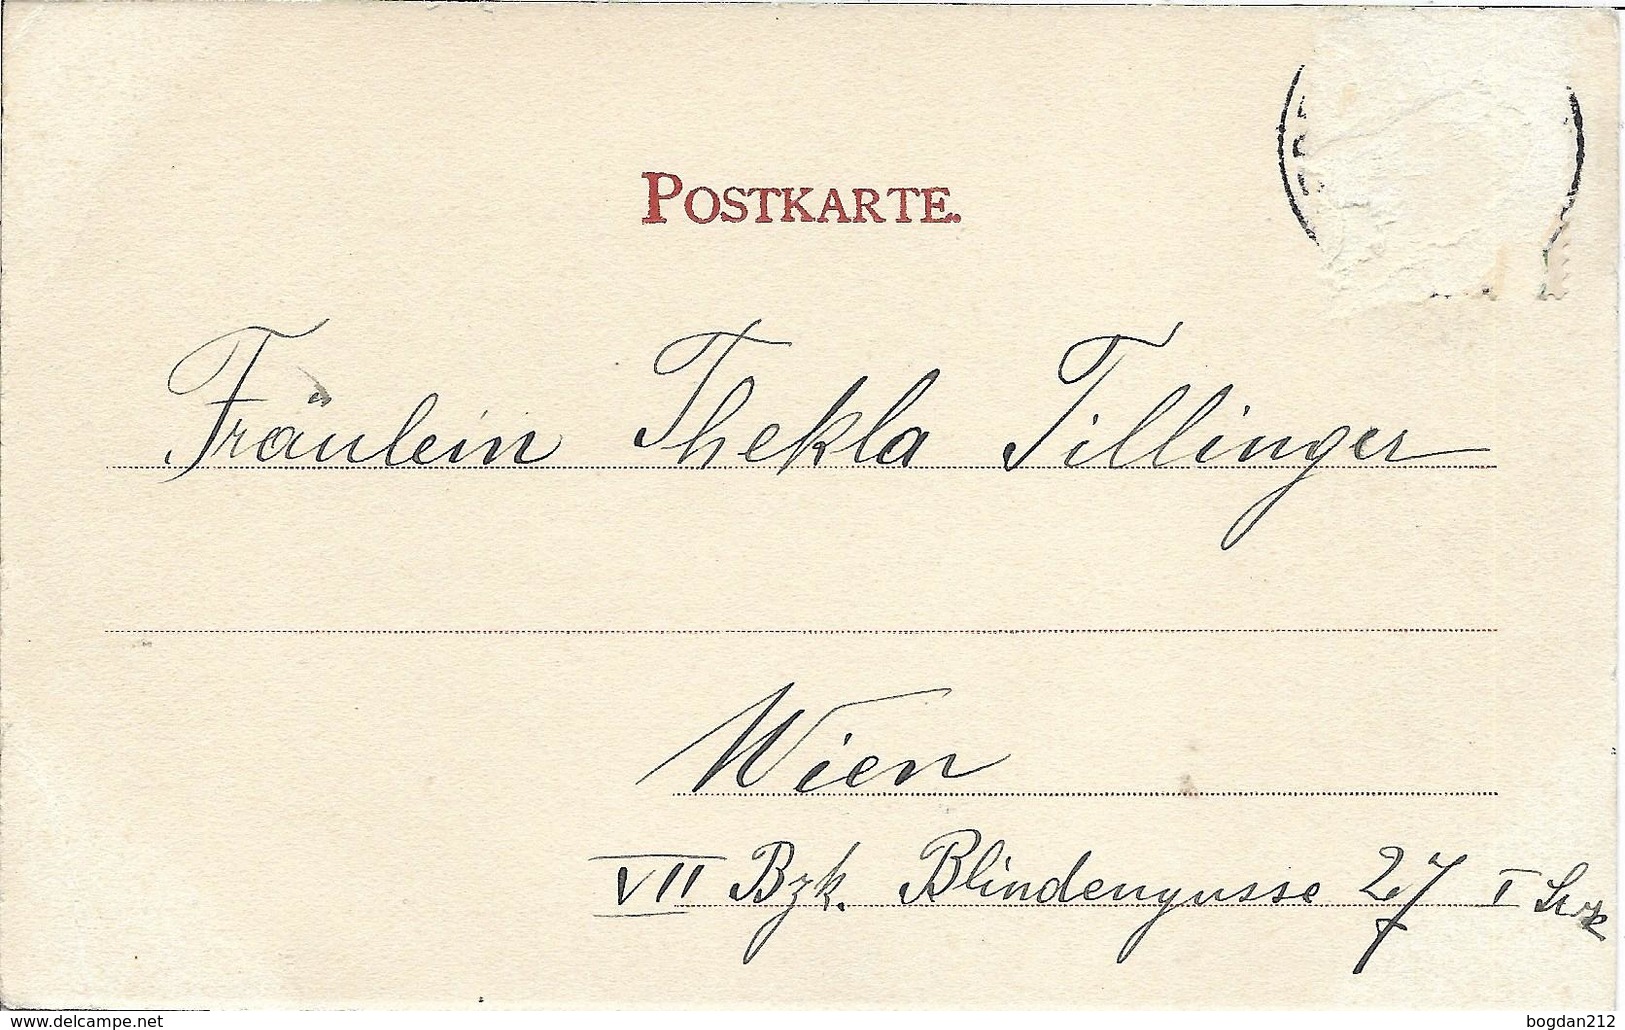 POSTKARTE.
Fräulein Thekla Tillinger
Wien
VII Bzk. Blindengasse 27 I
www.delcampe.net
bogdan212